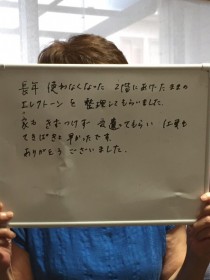 長年 使わなくなった 2階にあげたままの
エレクトーンを 整理してもらいました。
家も きずつけず 気遣ってもらい 仕事も
てきぱきと 早かったです。
ありがとう ございました。